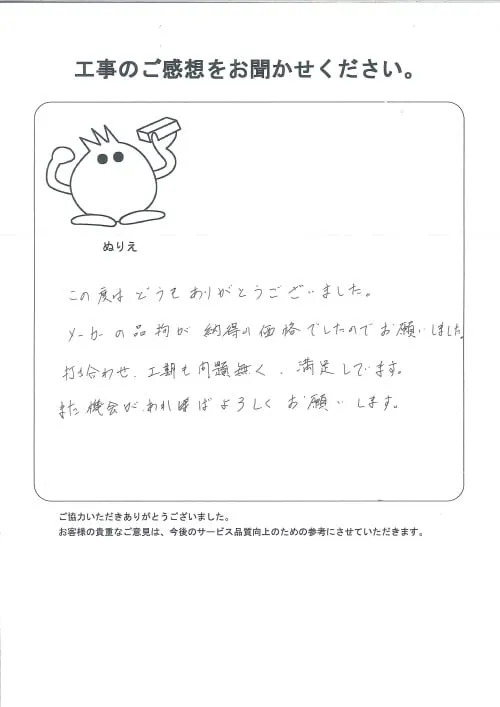 工事のご感想をお聞かせください。
ぬりえ
この度はどうもありがとうございました。
メーカーの品物が納得の価格でしたのでお願いしました。
打ち合わせ、工期も問題無く、満足しています。
また機会があればよろしくお願いします。
ご協力いただきありがとうございました。
お客様の貴重なご意見は、今後のサービス品質向上のための参考にさせていただきます。